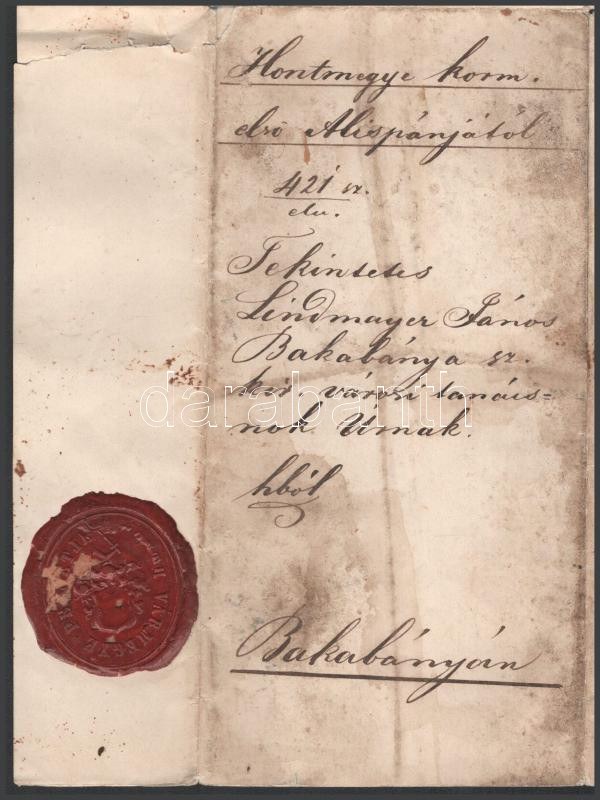 Hontmegye korm.
első Alispánjától
421 sz.
eln.
Tekintetes
Lindmayer János
Bakabánya sz.
kir. városi tanács=
nok Úrnak.
hból
Bakabányán
darabanth
VÁRMEGYE